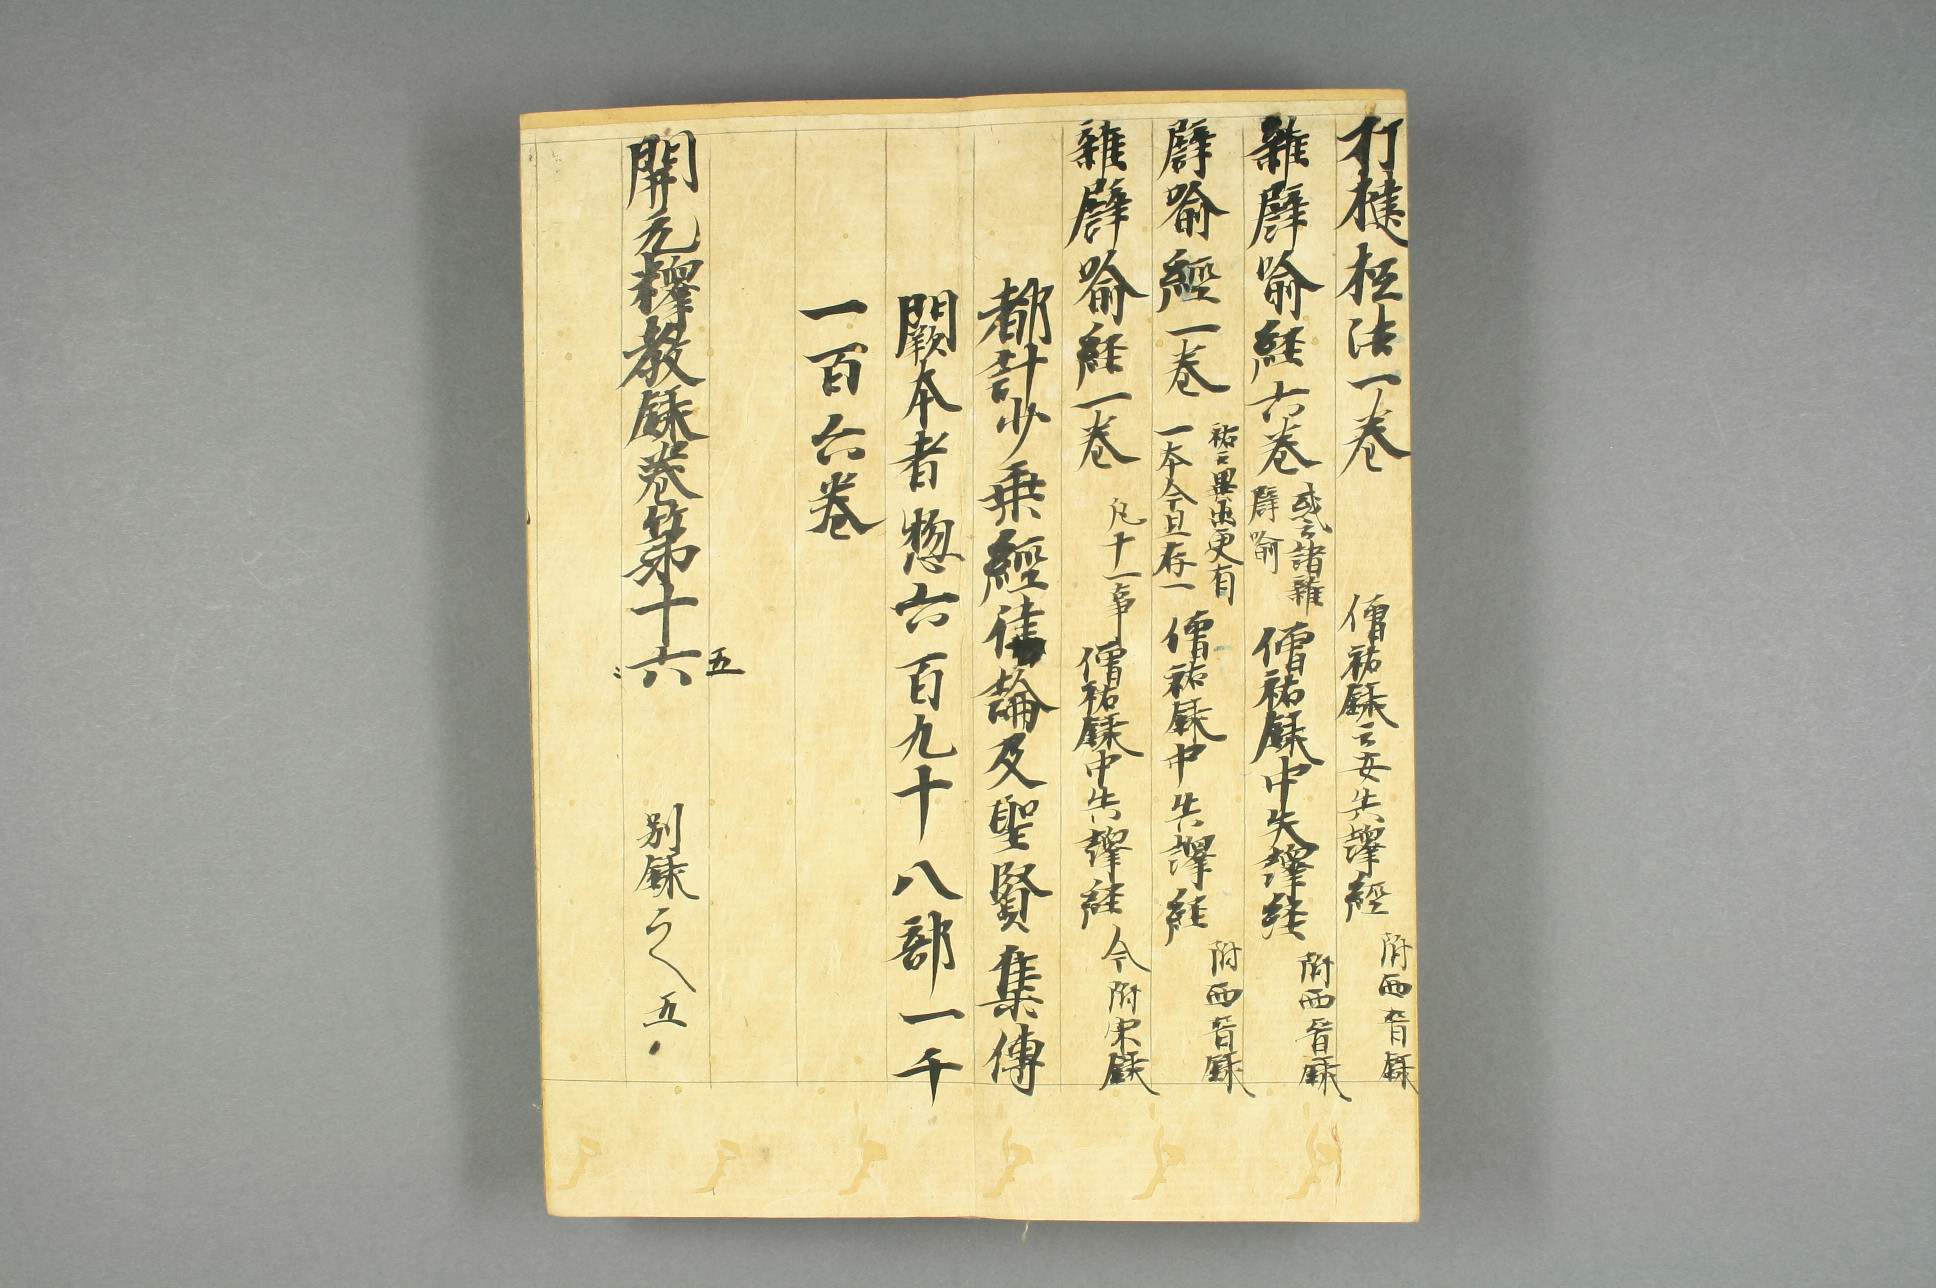 打楗柾法一卷 僧祐録云安失譯經 附西晉録
雜譬喻経六卷 或云諸雜譬喻 僧祐録中失譯経 附西晉録
譬喻經一卷 祐云異出更有一本今且存一 僧祐録中失譯経 附西晉録
雜譬喻経一卷 凡十一事 僧祐録中失譯経 今附宋録
都計少乗經律論及聖賢集傳
闕本者惣六百九十八部一千
一百六卷
開元釋教録卷第十六 五 別録之五